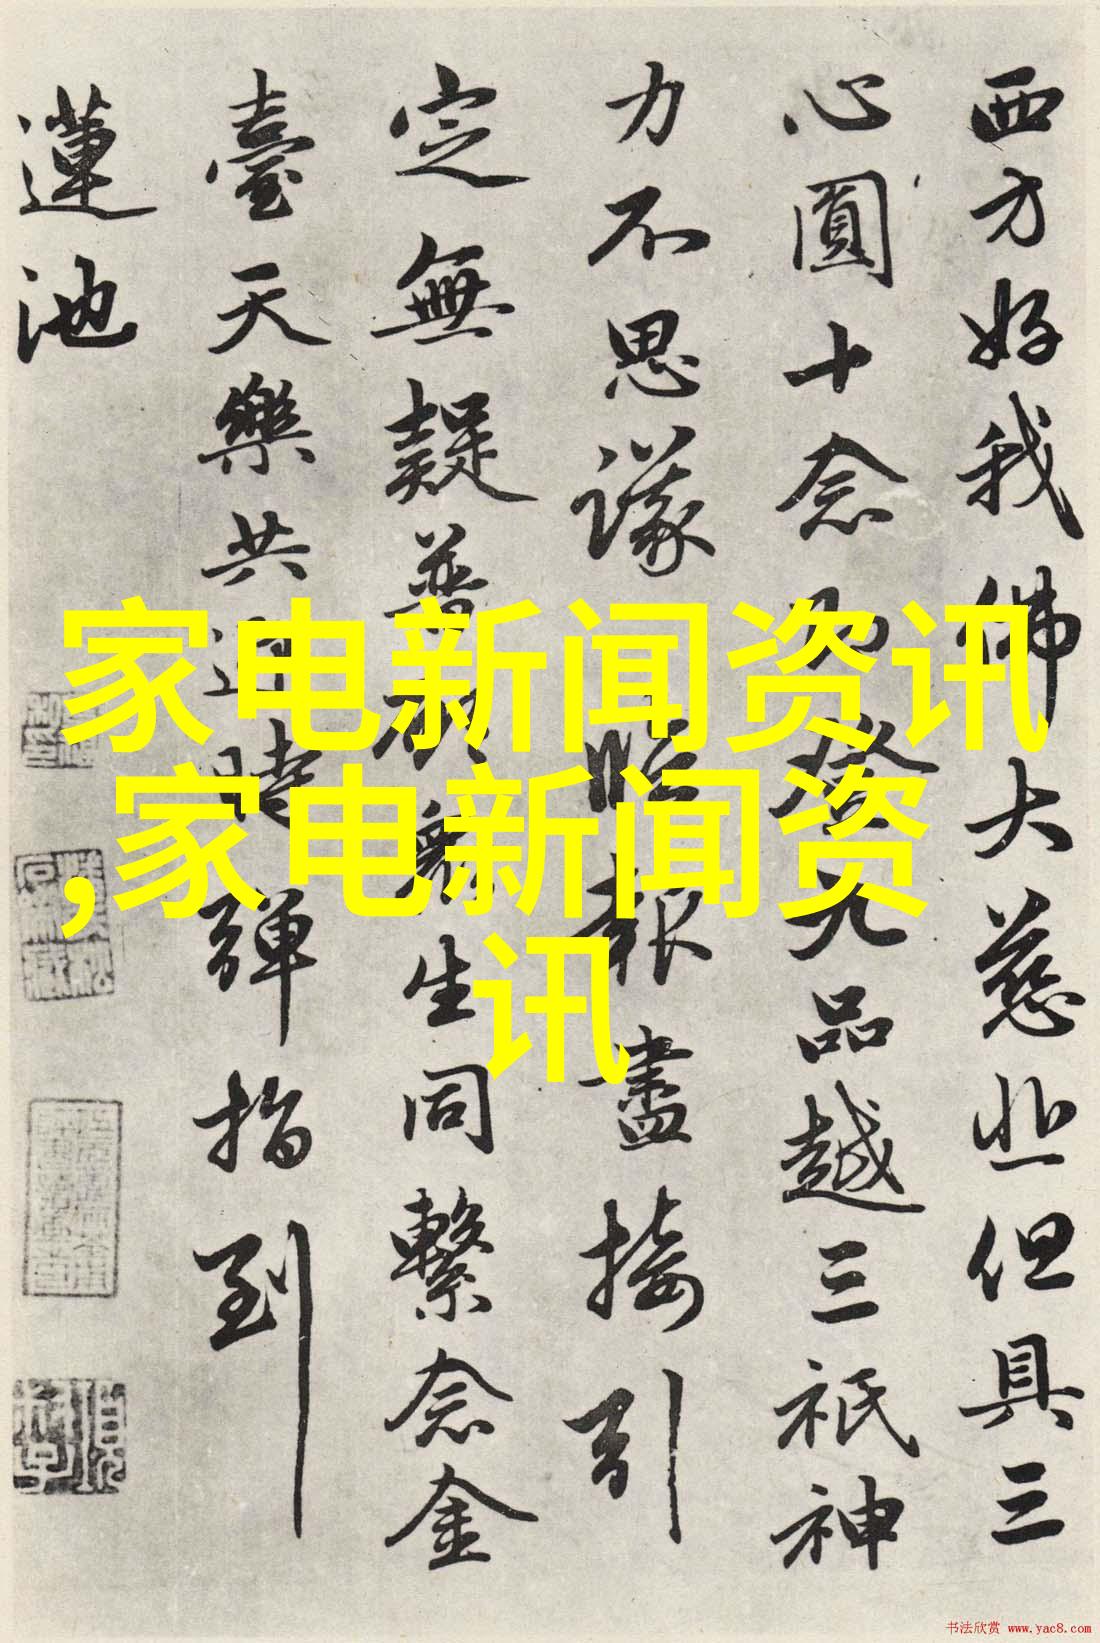 西方好我佛大慈悲但具三
心圓十念乃登九品越三祇神
力不思議 臨報盡接引
定無疑普願眾生同繫念金
臺天樂共迎時彈指到
蓮池
家电新闻资讯
,家电新闻资
讯
书法欣赏 www.yac8.com